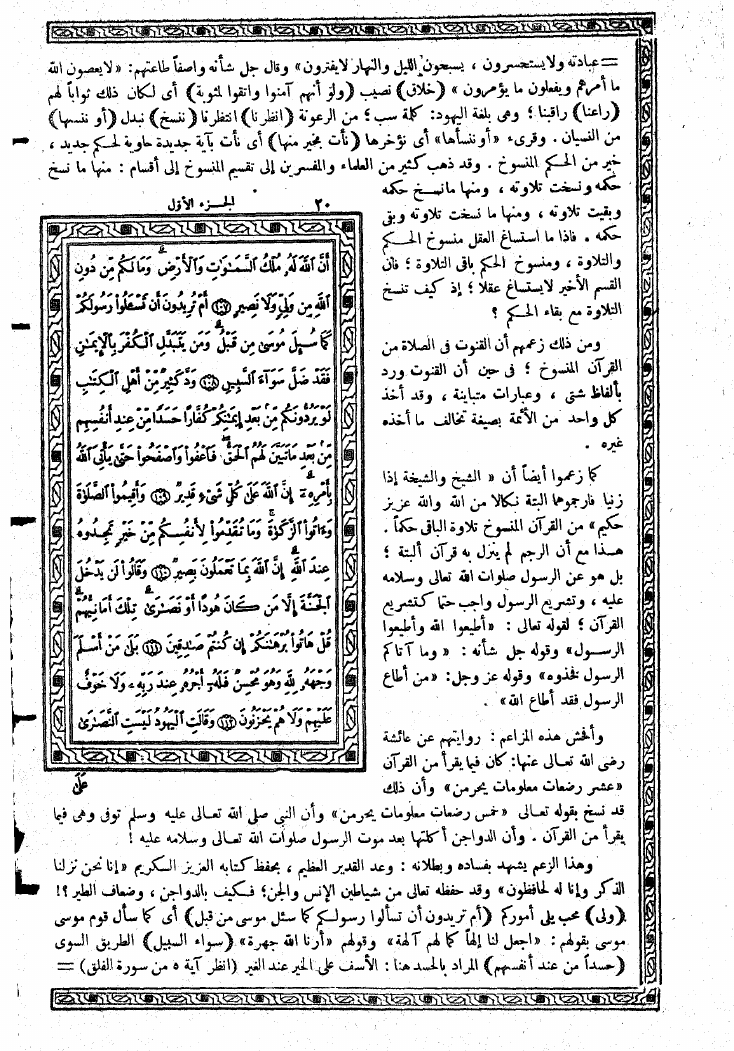 = عبادته ولا يستحسرون ، يسبحون الليل والنهار لا يفترون» وقال جل شأنه واصفاً طاعتهم: «لا يعصون الله
ما أمرهم ويفعلون ما يؤمرون» (خلاق) نصيب (ولو أنهم آمنوا واتقوا لمثوبة) أى لكان ذلك ثواباً لهم
(راعنا) راقبنا ؛ وهى بلغة اليهود: كلمة سب ؛ من الرعونة (انظرنا) انتظرنا (ننسخ) نبدل (أو ننسها)
من النسيان . وقرىء «أو ننسأها» أى نؤخرها (نأت بخير منها) أى نأت بآية جديدة حاوية لحكم جديد ،
خير من الحكم المنسوخ . وقد ذهب كثير من العلماء والمفسرين إلى تقسيم المنسوخ إلى أقسام : منها ما نسخ
حكمه ونسخت تلاوته ، ومنها ما نسخ حكمه
وبقيت تلاوته ، ومنها ما نسخت تلاوته وبقى
حكمه . فاذا ما استساغ العقل منسوخ الحكم
والتلاوة ، ومنسوخ الحكم باقى التلاوة ؛ فان
القسم الأخير لا يستساغ عقلا ؛ إذ كيف تنسخ
التلاوة مع بقاء الحكم ؟
ومن ذلك زعمهم أن القنوت فى الصلاة من
القرآن المنسوخ ؛ فى حين أن القنوت ورد
بألفاظ شتى ، وعبارات متباينة ، وقد أخذ
كل واحد من الأئمة بصيغة تخالف ما أخذه
غيره .
كما زعموا أيضاً أن «الشيخ والشيخة إذا
زنيا فارجموهما البتة نكالا من الله والله عزيز
حكيم» من القرآن المنسوخ تلاوة الباقى حكماً .
هذا مع أن الرجم لم ينزل به قرآن ألبتة ؛
بل هو عن الرسول صلوات الله تعالى وسلامه
عليه ، وتشريع الرسول واجب حتما كتشريع
القرآن ؛ لقوله تعالى : «أطيعوا الله وأطيعوا
الرسول» وقوله جل شأنه : «وما آتاكم
الرسول فخذوه» وقوله عز وجل: «من أطاع
الرسول فقد أطاع الله» .
وأفحش هذه المزاعم : روايتهم عن عائشة
رضى الله تعالى عنها: كان فيما يقرأ من القرآن
«عشر رضعات معلومات يحرمن» وأن ذلك
٢٠ الجزء الأول
أَنَّ اللَّهَ لَهُ مُلْكُ السَّمَاوَاتِ وَالْأَرْضِ وَمَا لَكُم مِّن دُونِ
اللَّهِ مِن وَلِيٍّ وَلَا نَصِيرٍ ١٠٧ أَمْ تُرِيدُونَ أَن تَسْأَلُوا رَسُولَكُمْ
كَمَا سُئِلَ مُوسَىٰ مِن قَبْلُ وَمَن يَتَبَدَّلِ الْكُفْرَ بِالْإِيمَانِ
فَقَدْ ضَلَّ سَوَاءَ السَّبِيلِ ١٠٨ وَدَّ كَثِيرٌ مِّنْ أَهْلِ الْكِتَابِ
لَوْ يَرُدُّونَكُم مِّن بَعْدِ إِيمَانِكُمْ كُفَّارًا حَسَدًا مِّنْ عِندِ أَنفُسِهِم
مِّن بَعْدِ مَا تَبَيَّنَ لَهُمُ الْحَقُّ فَاعْفُوا وَاصْفَحُوا حَتَّىٰ يَأْتِيَ اللَّهُ
بِأَمْرِهِ إِنَّ اللَّهَ عَلَىٰ كُلِّ شَيْءٍ قَدِيرٌ ١٠٩ وَأَقِيمُوا الصَّلَاةَ
وَءَاتُوا الزَّكَاةَ وَمَا تُقَدِّمُوا لِأَنفُسِكُم مِّنْ خَيْرٍ تَجِدُوهُ
عِندَ اللَّهِ إِنَّ اللَّهَ بِمَا تَعْمَلُونَ بَصِيرٌ ١١٠ وَقَالُوا لَن يَدْخُلَ
الْجَنَّةَ إِلَّا مَن كَانَ هُودًا أَوْ نَصَارَىٰ تِلْكَ أَمَانِيُّهُمْ
قُلْ هَاتُوا بُرْهَانَكُمْ إِن كُنتُمْ صَادِقِينَ ١١١ بَلَىٰ مَنْ أَسْلَمَ
وَجْهَهُ لِلَّهِ وَهُوَ مُحْسِنٌ فَلَهُ أَجْرُهُ عِندَ رَبِّهِ وَلَا خَوْفٌ
عَلَيْهِمْ وَلَا هُمْ يَحْزَنُونَ ١١٢ وَقَالَتِ الْيَهُودُ لَيْسَتِ النَّصَارَىٰ
عَلَىٰ
قد نسخ بقوله تعالى «خمس رضعات معلومات يحرمن» وأن النبى صلى الله تعالى عليه وسلم توفى وهى فيما
يقرأ من القرآن . وأن الدواجن أكلتها بعد موت الرسول صلوات الله تعالى وسلامه عليه !
وهذا الزعم يشهد بفساده وبطلانه : وعد القدير العظيم ، بحفظ كتابه العزيز الكريم «إنا نحن نزلنا
الذكر وإنا له لحافظون» وقد حفظه تعالى من شياطين الإنس والجن؛ فكيف بالدواجن ، وضعاف الطير ؟!
(ولى) محب يلى أموركم (أم تريدون أن تسألوا رسولكم كما سئل موسى من قبل) أى كما سأل قوم موسى
موسى بقولهم : «اجعل لنا إلهاً كما لهم آلهة» وقولهم «أرنا الله جهرة» (سواء السبيل) الطريق السوى
(حسداً من عند أنفسهم) المراد بالحسد هنا : الأسف على الخير عند الغير (انظر آية ٥ من سورة الفلق) =